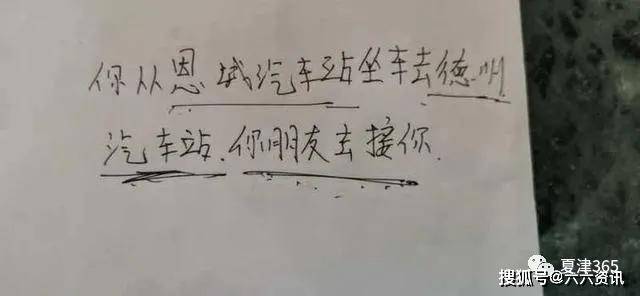 你从恩城汽车站坐车去德州
汽车站.你朋友去接你.
夏津365
搜狐号@六六资讯